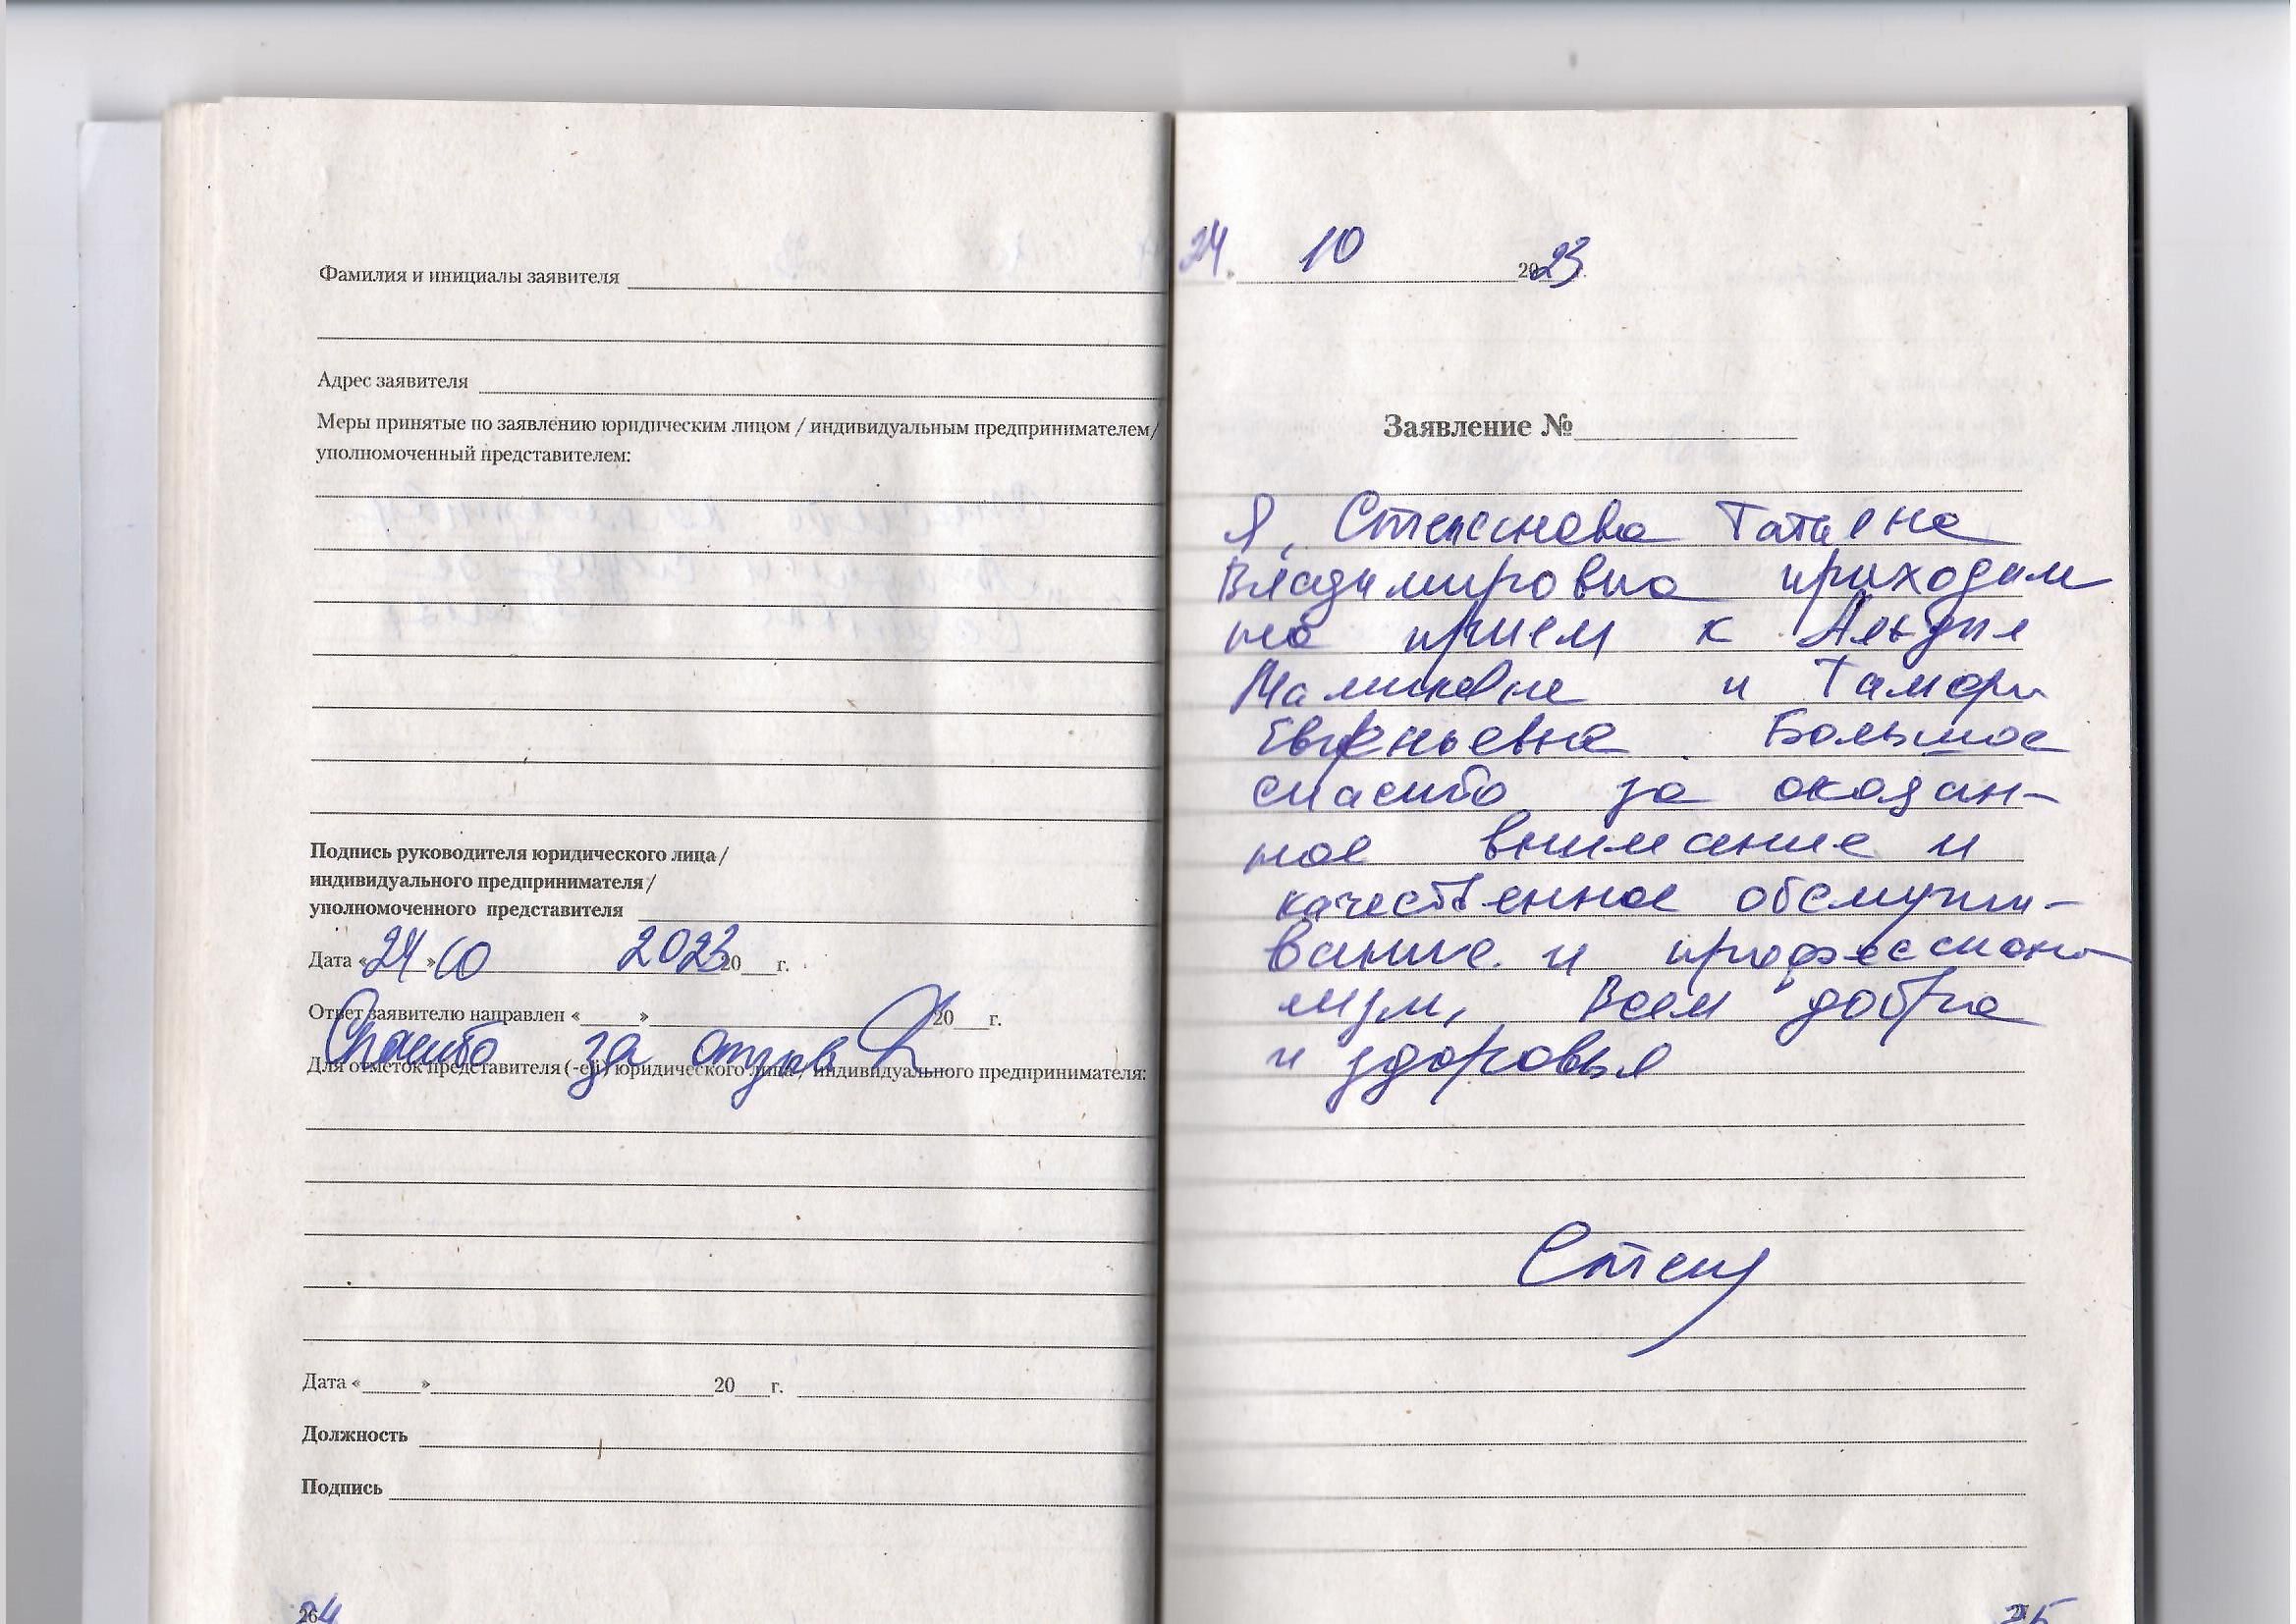 Фамилия и инициалы заявителя
Адрес заявителя
Меры принятые по заявлению юридическим лицом / индивидуальным предпринимателем/
уполномоченный представителем:
Подпись руководителя юридического лица /
индивидуального предпринимателя /
уполномоченного представителя
Дата «24» 10 2023 20 г.
Ответ заявителю направлен « » 20 г.
Спасибо за отзыв
Для отметок представителя (-ей) юридического лица / индивидуального предпринимателя:
Дата « » 20 г.
Должность
Подпись
24. 10 2023 г.
Заявление №
Я, Степанова Татьяна
Владимировна приходим
на прием к Альфие
Маликовне и Тамары
Евгеньевне Большое
спасибо за оказан-
ное внимание и
качественное обслужи-
вание и профессиона
лизм, Всем добра
и здоровья